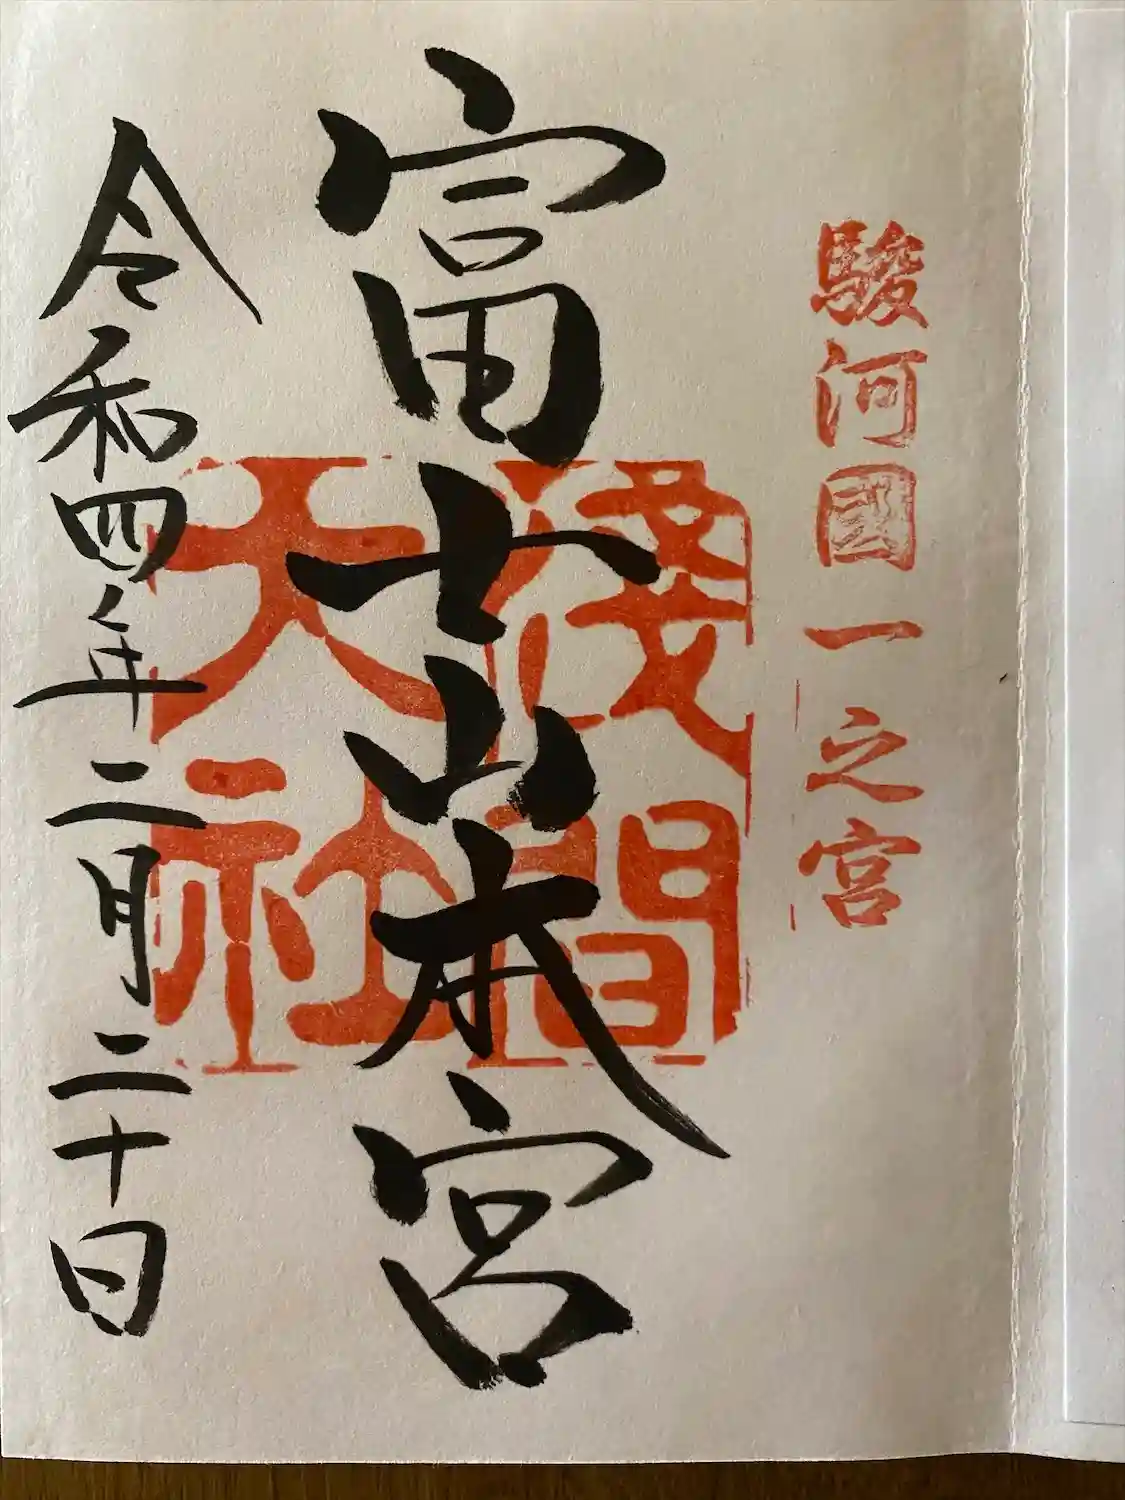 駿河國一之宮
富士山本宮
淺間大社
令和四年二月二十日